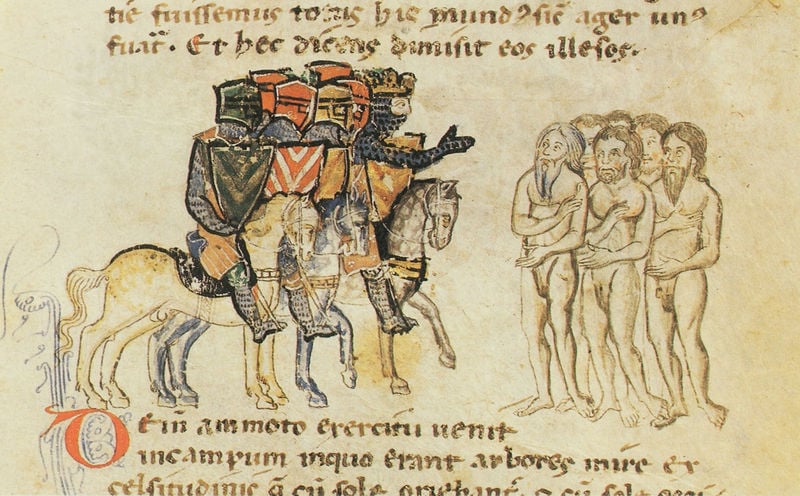 tie fuissemus totus hic mundꝰ sic̄ ager unꝰ
fuat̄. Et hec dicens dimisit eos illesos.
Dein ammoto exercitu uenit
incampum inquo erant arbores mire ex
celsitudinis q̄ cū sole oriebant̄. ⁊ cū sole